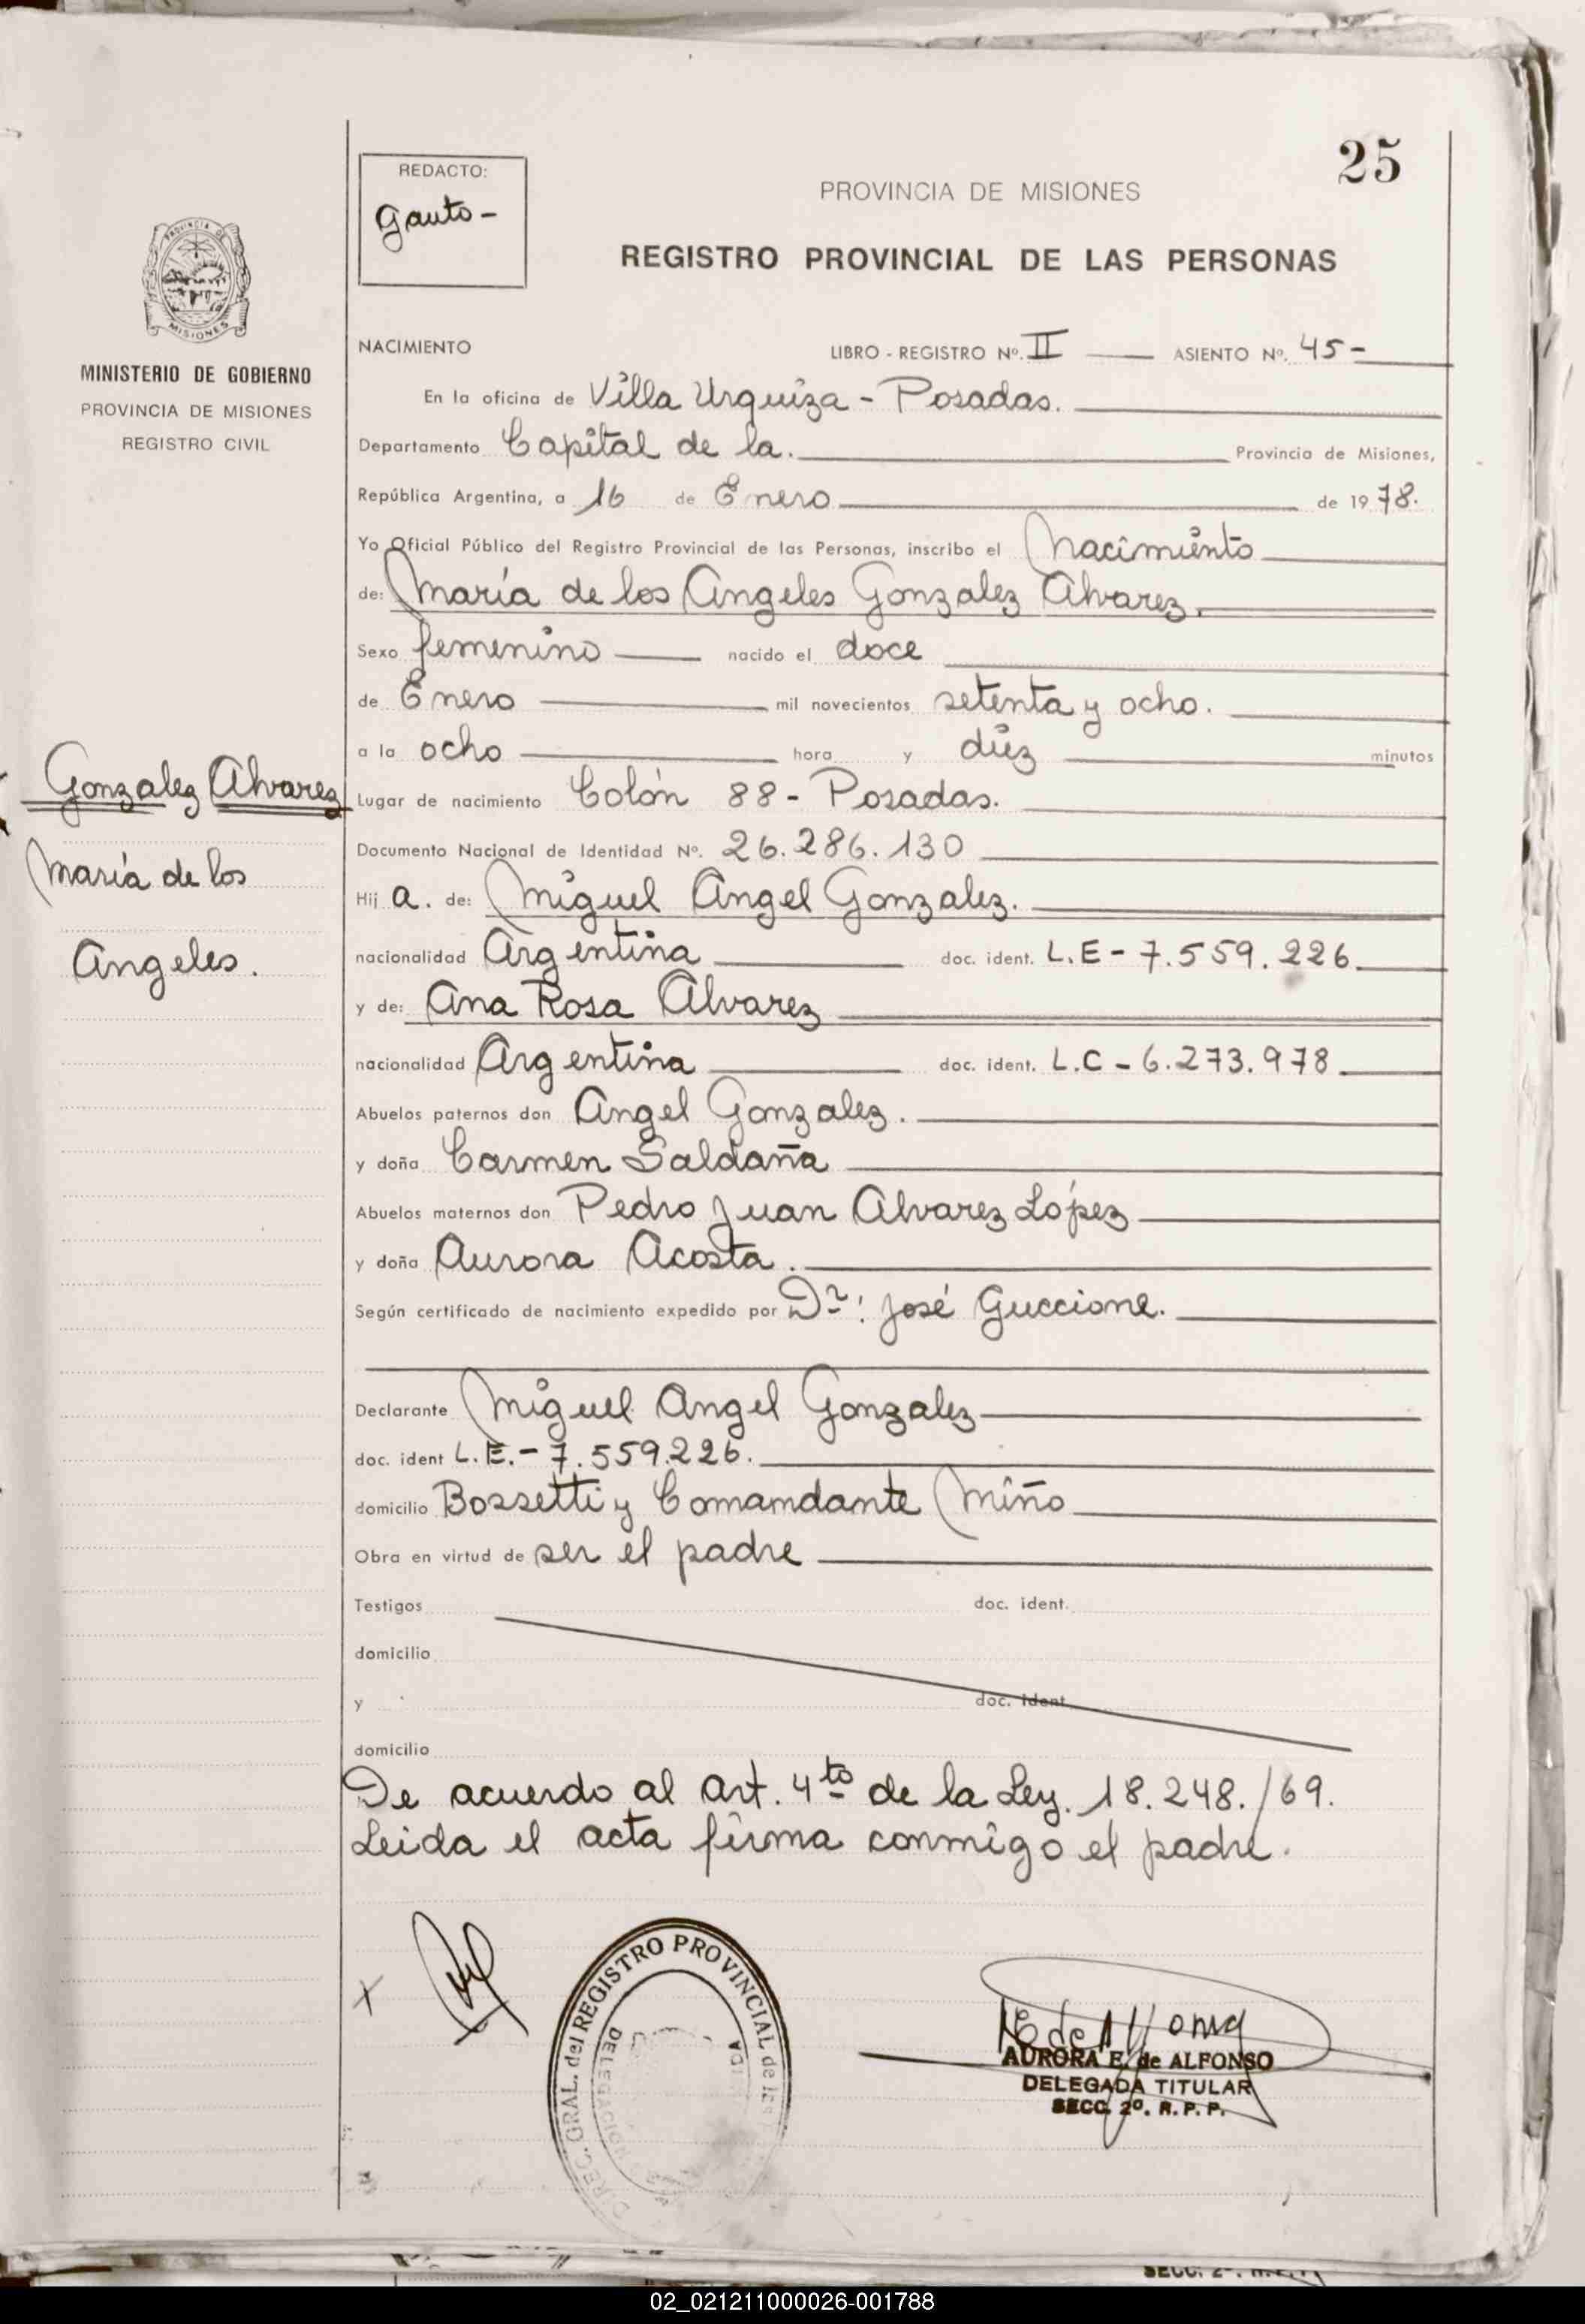 25
REDACTO:
Gauto-
PROVINCIA DE MISIONES
REGISTRO PROVINCIAL DE LAS PERSONAS
PROVINCIA DE
MISIONES
MINISTERIO DE GOBIERNO
PROVINCIA DE MISIONES
REGISTRO CIVIL
NACIMIENTO LIBRO - REGISTRO Nº. II ASIENTO Nº. 45-
En la oficina de Villa Urquiza - Posadas.
Departamento Capital de la. Provincia de Misiones,
República Argentina, a 16 de Enero de 1978.
Yo Oficial Público del Registro Provincial de las Personas, inscribo el Nacimiento
de: María de los Angeles Gonzalez Alvarez.
Sexo femenino nacido el doce
de Enero mil novecientos setenta y ocho.
a la ocho hora y diez minutos
Gonzalez Alvarez
María de los
Angeles.
Lugar de nacimiento Colón 88- Posadas.
Documento Nacional de Identidad Nº. 26.286.130
Hij a. de: Miguel Angel Gonzalez.
nacionalidad Argentina doc. ident. L.E- 7.559.226
y de: Ana Rosa Alvarez
nacionalidad Argentina doc. ident. L.C - 6.273.978
Abuelos paternos don Angel Gonzalez.
y doña Carmen Saldaña
Abuelos maternos don Pedro Juan Alvarez López
y doña Aurora Acosta.
Según certificado de nacimiento expedido por Dr: José Guccione.
Declarante Miguel Angel Gonzalez
doc. ident L.E.- 7.559.226.
domicilio Bossetti y Comandante Miño
Obra en virtud de ser el padre
Testigos doc. ident.
domicilio
y doc. ident
domicilio
De acuerdo al art. 4to de la Ley. 18.248./69.
Leida el acta firma conmigo el padre.
X
DIREC. GRAL. del REGISTRO PROVINCIAL de las
AURORA E. de ALFONSO
DELEGADA TITULAR
SECC. 2º. R.P.P.
02_021211000026-001788